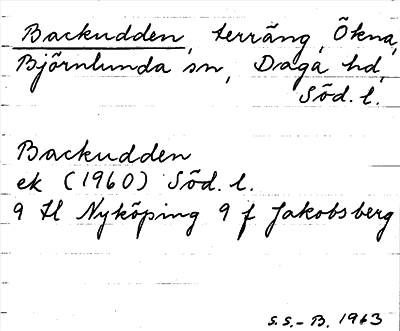 Backudden, terräng, Ökna,
Björnlunda sn, Daga hd,
Söd. l.
Backudden
ek (1960) Söd. l.
9 H Nyköping 9 f Jakobsberg
S.S.-B. 1963